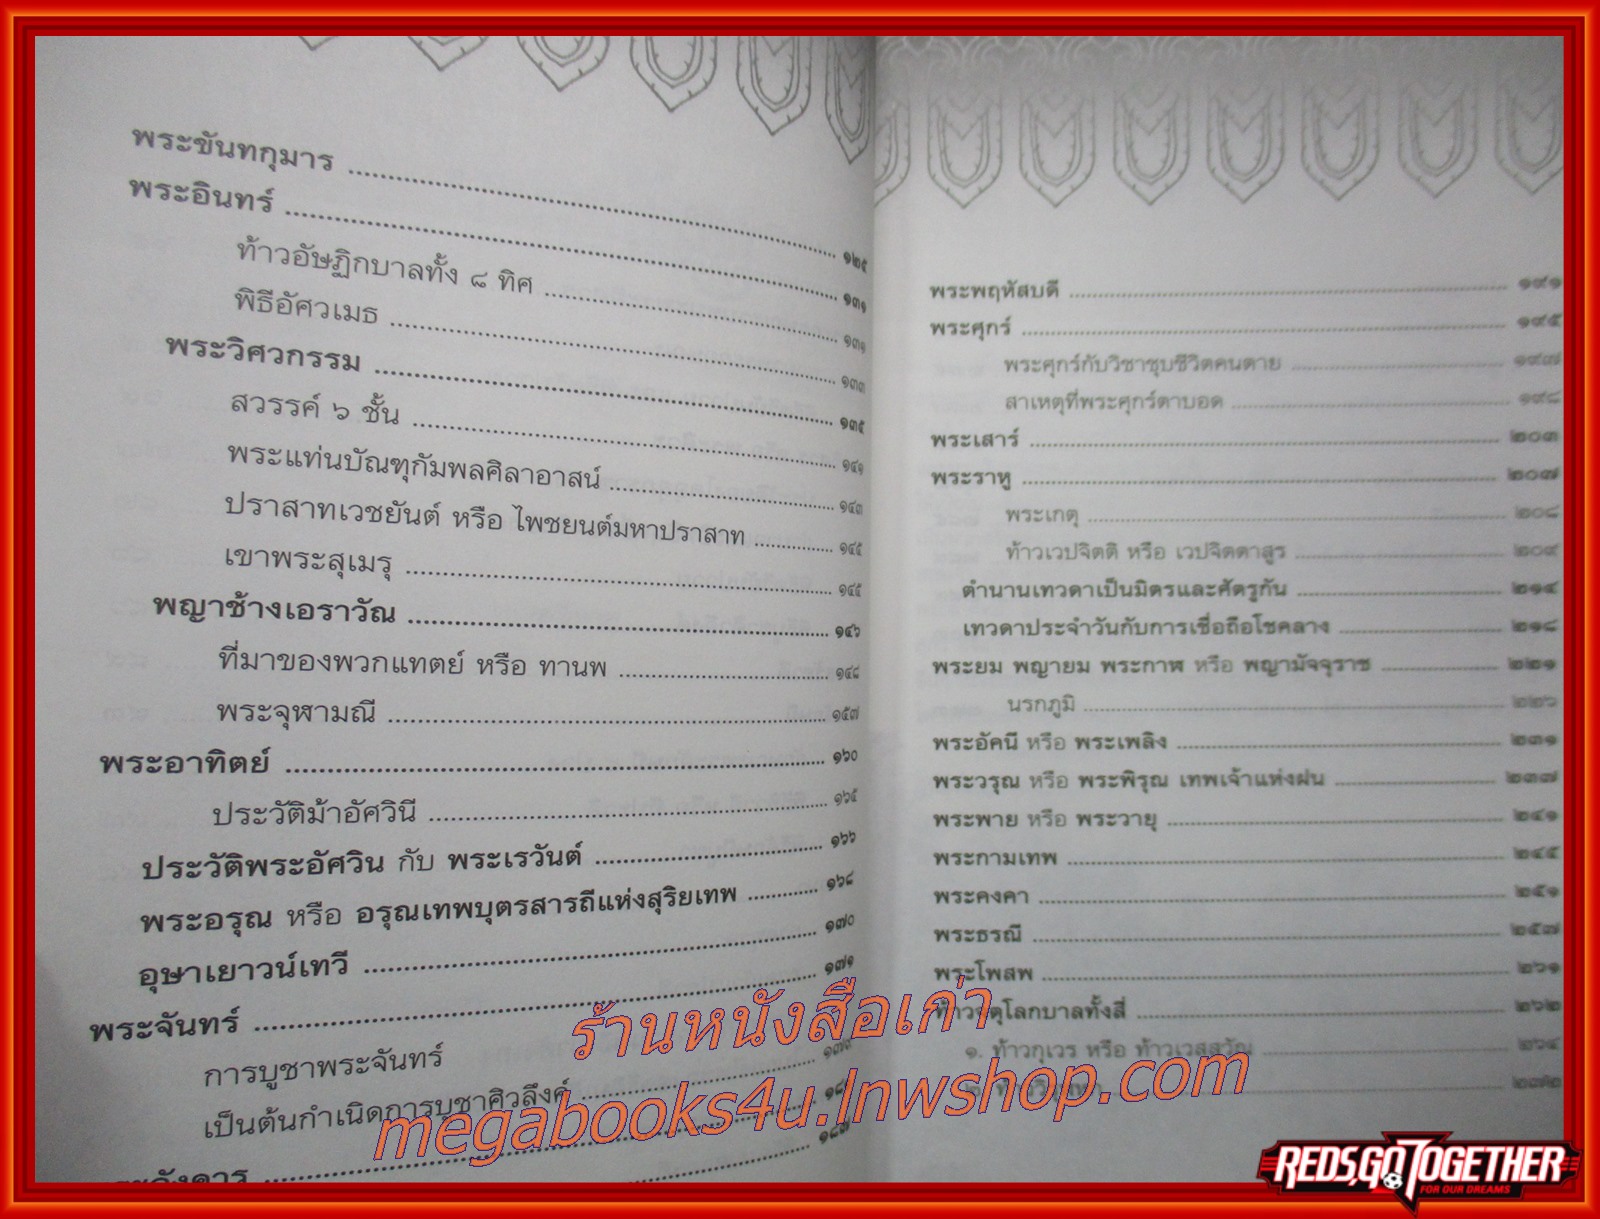 พระขันทกุมาร ........ ๑๒๕
พระอินทร์ ........ ๑๓๑
ท้าวอัษฏิกบาลทั้ง ๘ ทิศ ........ ๑๓๑
พิธีอัศวเมธ ........ ๑๓๓
พระวิศวกรรม ........ ๑๓๕
สวรรค์ ๖ ชั้น ........ ๑๔๑
พระแท่นบัณฑุกัมพลศิลาอาสน์ ........ ๑๔๓
ปราสาทเวชยันต์ หรือ ไพชยนต์มหาปราสาท ........ ๑๔๕
เขาพระสุเมรุ ........ ๑๔๕
พญาช้างเอราวัณ ........ ๑๔๖
ที่มาของพวกแทตย์ หรือ ทานพ ........ ๑๔๘
พระจุฬามณี ........ ๑๕๗
พระอาทิตย์ ........ ๑๖๐
ประวัติม้าอัศวินี ........ ๑๖๕
ประวัติพระอัศวิน กับ พระเรวันต์ ........ ๑๖๖
พระอรุณ หรือ อรุณเทพบุตรสารถีแห่งสุริยเทพ ........ ๑๖๘
อุษาเยาวน์เทวี ........ ๑๗๐
พระจันทร์ ........ ๑๗๑
การบูชาพระจันทร์
เป็นต้นกำเนิดการบูชาศิวลึงค์ ........
........ ๑๘๗
พระพฤหัสบดี ........ ๑๙๑
พระศุกร์ ........ ๑๙๕
พระศุกร์กับวิชาชุบชีวิตคนตาย ........ ๑๙๗
สาเหตุที่พระศุกร์ตาบอด ........ ๑๙๘
พระเสาร์ ........ ๒๐๓
พระราหู ........ ๒๐๗
พระเกตุ ........ ๒๐๘
ท้าวเวปจิตติ หรือ เวปจิตตาสูร ........ ๒๐๙
ตำนานเทวดาเป็นมิตรและศัตรูกัน ........ ๒๑๔
เทวดาประจำวันกับการเชื่อถือโชคลาง ........ ๒๑๘
พระยม พญายม พระกาฬ หรือ พญามัจจุราช ........ ๒๒๑
นรกภูมิ ........ ๒๒๖
พระอัคนี หรือ พระเพลิง ........ ๒๓๑
พระวรุณ หรือ พระพิรุณ เทพเจ้าแห่งฝน ........ ๒๓๗
พระพาย หรือ พระวายุ ........ ๒๔๑
พระกามเทพ ........ ๒๔๕
พระคงคา ........ ๒๕๑
พระธรณี ........ ๒๕๗
พระโพสพ ........ ๒๖๑
ท้าวจตุโลกบาลทั้งสี่ ........ ๒๖๒
๑. ท้าวกุเวร หรือ ท้าวเวสสุวัณ ........ ๒๖๔
ร้านหนังสือเก่า
megabooks4u.lnwshop.com
REDS,GO TOGETHER
FOR OUR DREAMS